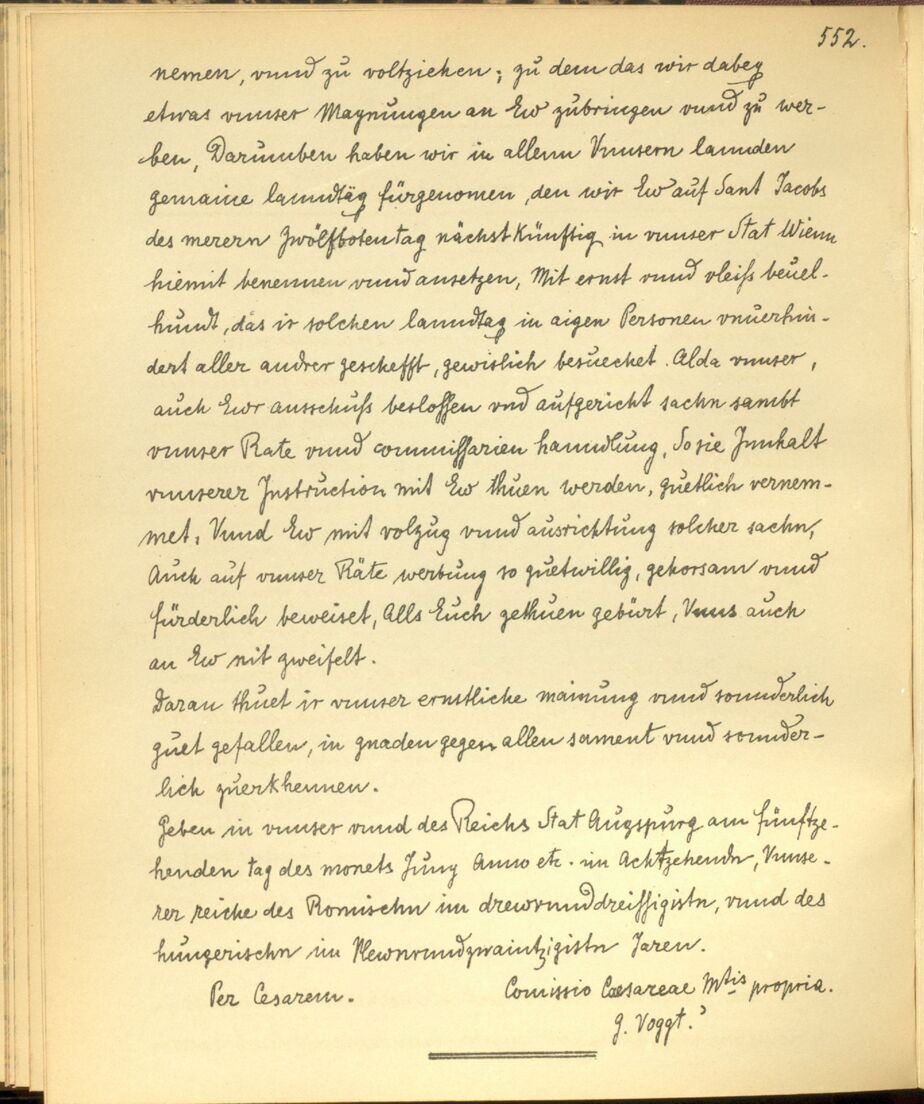 552.
nemen, vnnd zu voltziehen; zu dem das wir dabey
etwas vnnser Maynungen an Ew zubringen vnnd zu wer-
ben, Darumben haben wir in allenn Vnnsern lannden
gemaine lanndtäg fürgenomen, den wir Ew auf Sant Jacobs
des merern Zwölfbotentag nächstkünftig in vnnser Stat Wienn
hiemit benennen vnnd ansetzen, Mit ernst vnnd vleiss beuel-
hundt, das ir solchen lanndtag in aigen Personen vnuerhin-
dert aller andrer geschefft, gewislich besuechet. Alda vnnser,
auch Ewr ausschuss beslossen vnd aufgericht sachn sambt
vnnser Räte vnnd commissarien hanndlung, So sie Innhalt
vnnserer Instruction mit Ew thuen werden, guetlich vernem-
met, Vnnd Ew mit volzug vnnd ausrichtung solcher sachn,
Auch auf vnnser Räte werbung so guetwillig, gehorsam vnnd
fürderlich beweiset, Alls Euch gethuen gebürt, Vnns auch
an Ew nit zweifelt.
Daran thuet ir vnnser ernstliche mainung vnnd sonnderlich
guet gefallen, in gnaden gegen allen sament vnnd sonnder-
lich zuerkhennen.
Geben in vnnser vnnd des Reichs Stat Augspurg am fünftze-
henden tag des monets Juny Anno etc. im Achtzehendn, Vnnse-
rer reiche des Romischn im drewvnnddreissigistn, vnnd des
hungerischn im Newnvnndzwaintzigistn Jaren.
Per Cesarem. Comissio Caesareae Mtis propria.
G. Voggt.